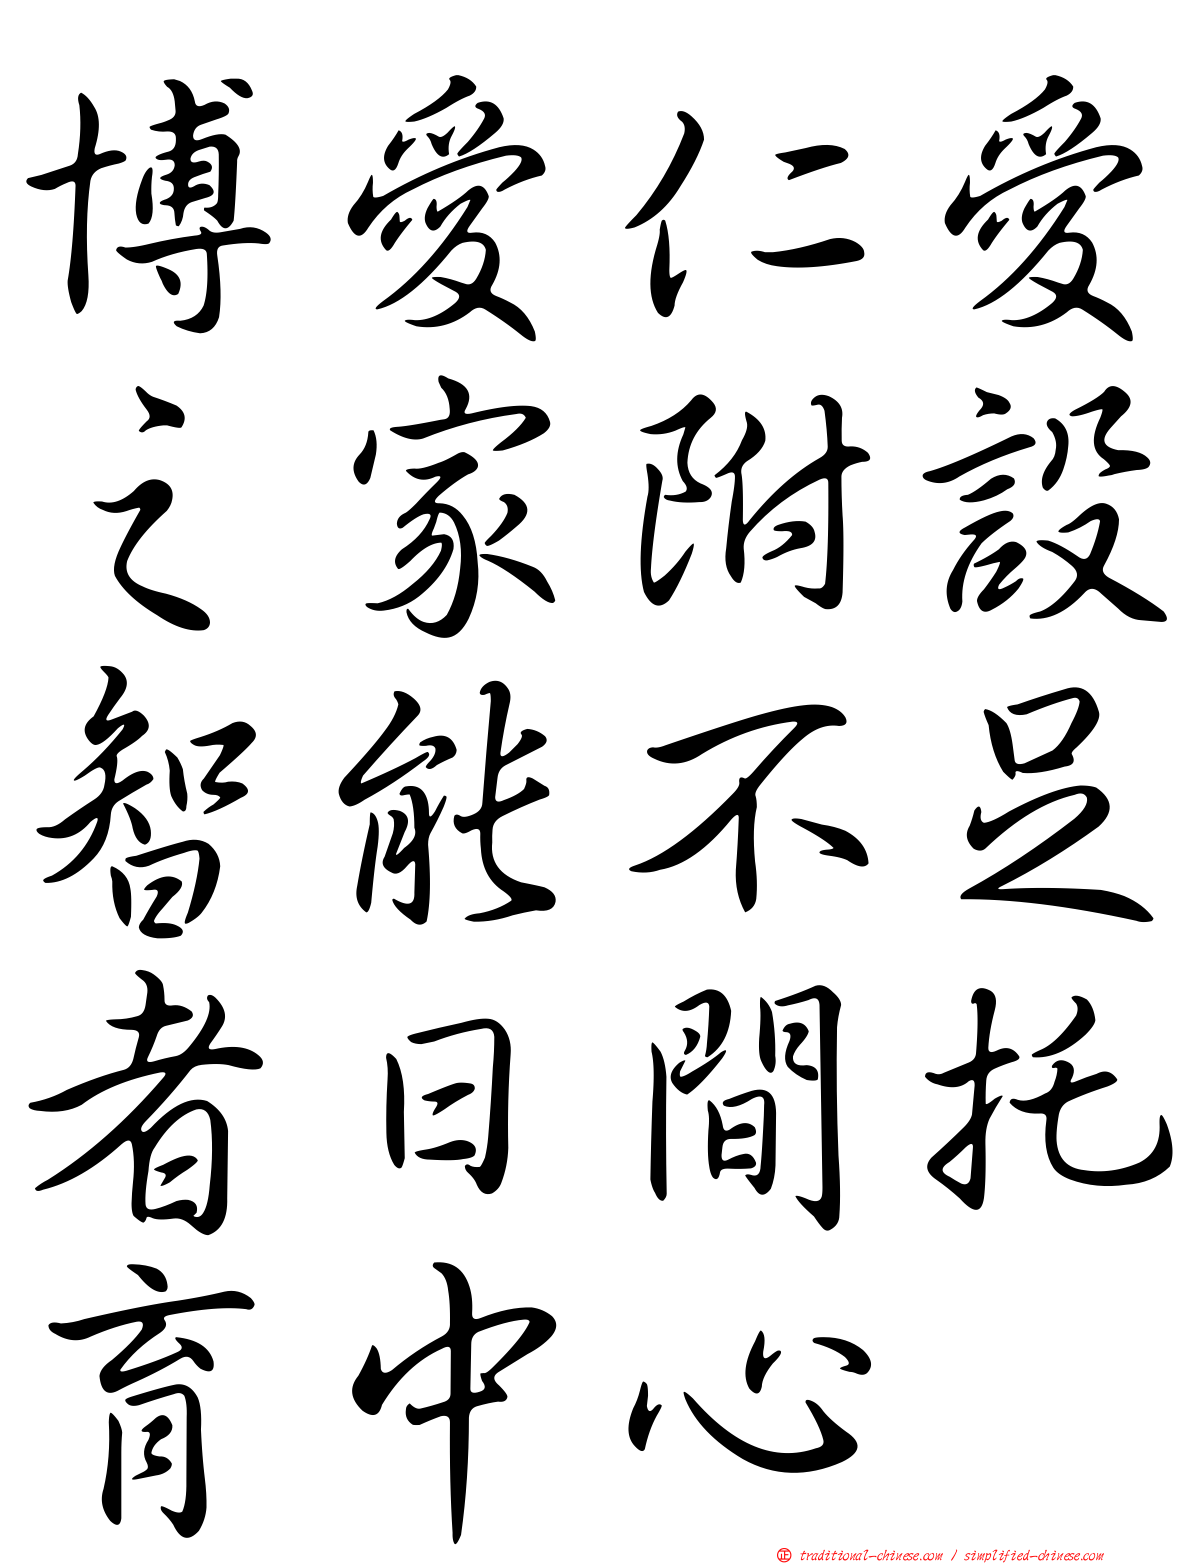 博愛仁愛
之家附設
智能不足
者日間托
育中心
㊣ traditional-chinese.com / simplified-chinese.com